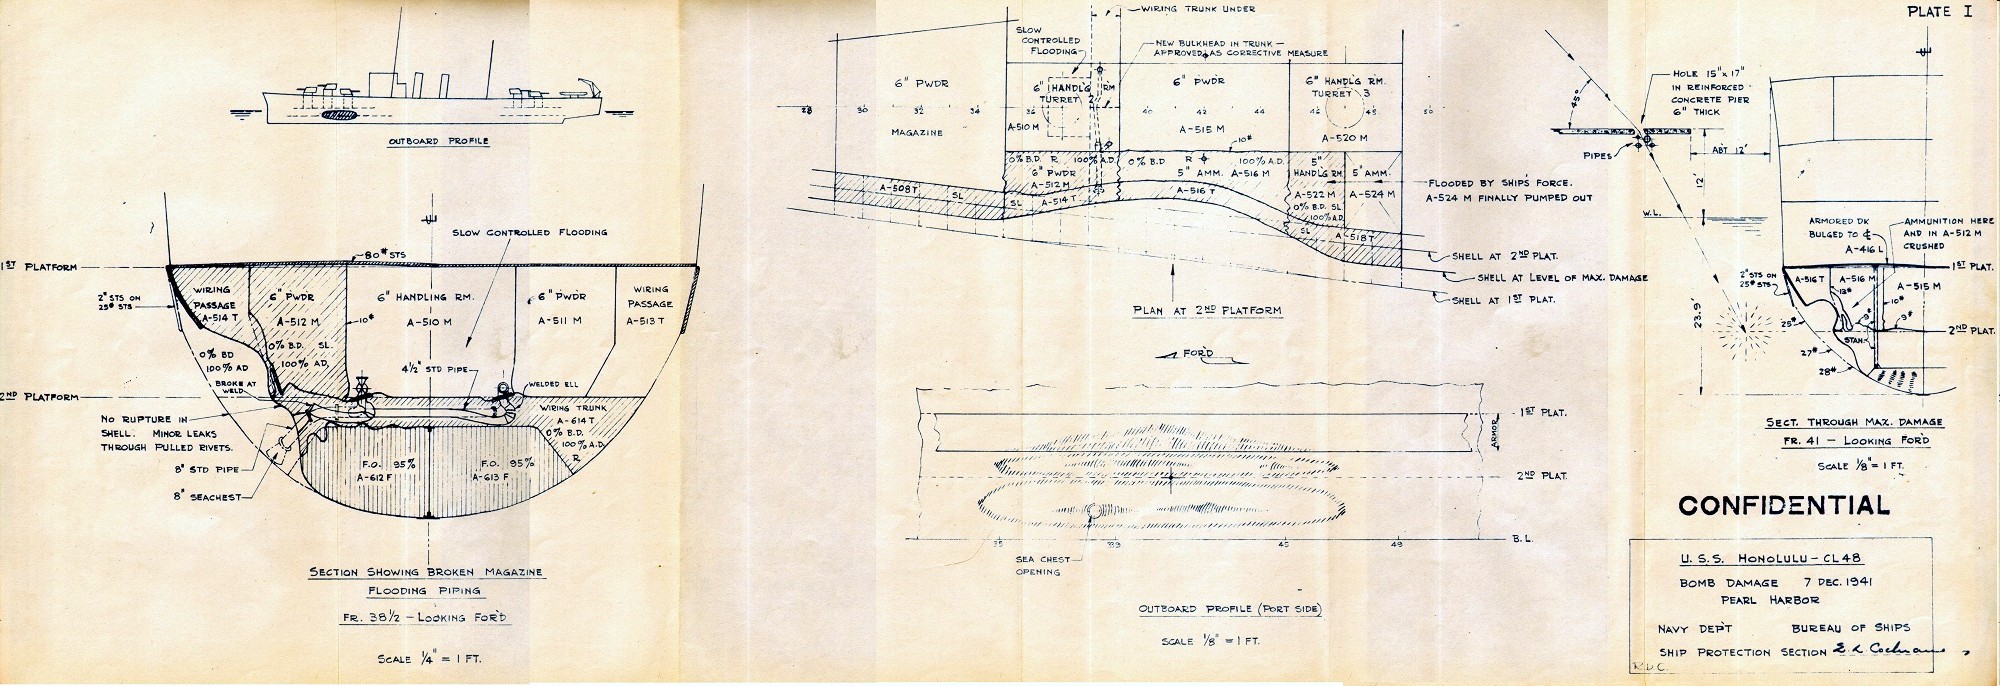 PLATE I
OUTBOARD PROFILE
SLOW CONTROLLED FLOODING
80# STS
1ST PLATFORM
2" STS ON
25# STS
WIRING
PASSAGE
A-514 T
6" PWDR
A-512 M
10#
6" HANDLING RM.
A-510 M
6" PWDR
A-511 M
WIRING
PASSAGE
A-513 T
0% BD
100% AD
0% B.D. SL.
100% A.D.
4 1/2" STD PIPE
BROKE AT
WELD
WELDED ELL
2ND PLATFORM
NO RUPTURE IN
SHELL. MINOR LEAKS
THROUGH PULLED RIVETS.
8" STD PIPE
8" SEACHEST
WIRING TRUNK
A-614 T
0% B.D.
100% A.D.
R
F.O. 95%
A-612 F
F.O. 95%
A-613 F
SECTION SHOWING BROKEN MAGAZINE
FLOODING PIPING
FR. 38 1/2 – LOOKING FOR'D
SCALE 1/4" = 1 FT.
WIRING TRUNK UNDER
SLOW
CONTROLLED
FLOODING
NEW BULKHEAD IN TRUNK –
APPROVED AS CORRECTIVE MEASURE
6" PWDR
MAGAZINE
6" HANDL'G RM
TURRET 2
A-510 M
6" PWDR
A-515 M
10#
6" HANDL'G RM.
TURRET 3
A-520 M
28 30 32 34 36 40 42 44 46 48 50
0% B.D. R 100% A.D.
6" PWDR
A-512 M
0% B.D R 100% A.D.
5" AMM. A-516 M
5"
HANDL'G RM
A-522 M
0% B.D. SL.
100% A.D.
5" AMM.
A-524 M
A-508 T SL
SL A-514 T
A-516 T
SL A-518 T
FLOODED BY SHIP'S FORCE.
A-524 M FINALLY PUMPED OUT
SHELL AT 2ND PLAT.
SHELL AT LEVEL OF MAX. DAMAGE
SHELL AT 1ST PLAT.
PLAN AT 2ND PLATFORM
FOR'D
1ST PLAT.
ARMOR
2ND PLAT.
B.L.
35 39 45 49
SEA CHEST
OPENING
OUTBOARD PROFILE (PORT SIDE)
SCALE 1/8" = 1 FT.
45°
HOLE 15" x 17"
IN REINFORCED
CONCRETE PIER
6" THICK
PIPES
ABT 12'
12'
W.L.
23.9'
ARMORED DK
BULGED TO ℄
A-416 L
AMMUNITION HERE
AND IN A-512 M
CRUSHED
1ST PLAT.
2" STS ON
25# STS
A-516 T
A-516 M
A-515 M
13#
10#
9#
9#
STAN.
2ND PLAT.
25#
27#
28#
SECT. THROUGH MAX. DAMAGE
FR. 41 – LOOKING FOR'D
SCALE 1/8" = 1 FT.
CONFIDENTIAL
U.S.S. HONOLULU – CL48
BOMB DAMAGE 7 DEC. 1941
PEARL HARBOR
NAVY DEP'T BUREAU OF SHIPS
SHIP PROTECTION SECTION E. L. Cochrane
R.D.C.